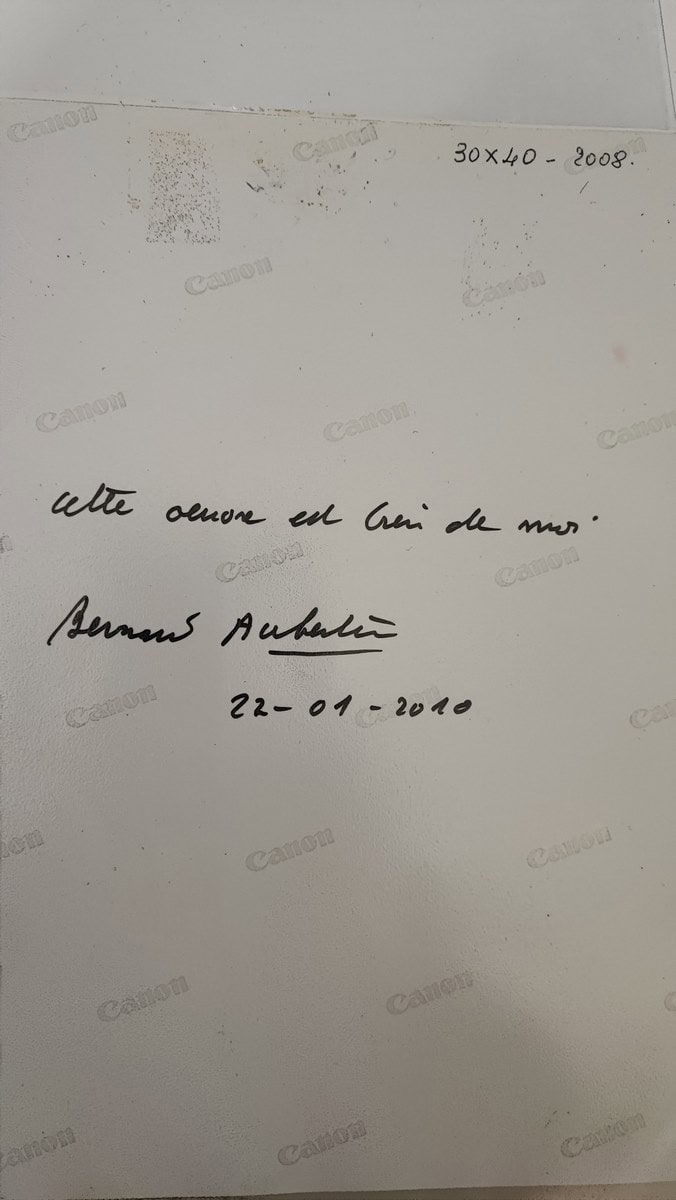 Canon
Canon
Canon
30x40 - 2008.
Canon
Canon
Canon
Canon
Canon
cette oeuvre est bien de moi.
Canon
Canon
Bernard Aubertin
Canon
Canon
Can
22-01-2010
non
Canon
Canon
Canon
Canon
Canon
Canon
Canon